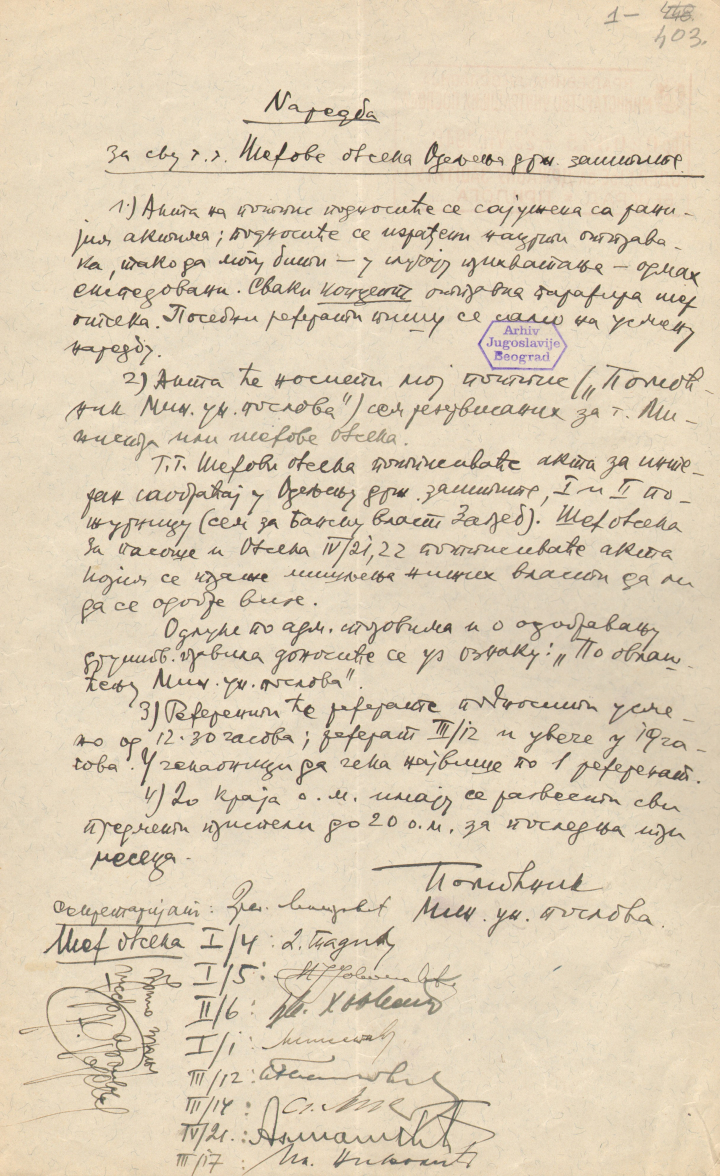 1— 448
403.
Наредба
за све г.г. Шефове отсека Одељења држ. заштите.
1.) Акта на потпис подносиће се сајужена са рани-
јим актима; подносиће се израђени нацрти отправа-
ка, тако да могу бити — у случају прихватања — одмах
експедовани. Сваки концепт отправка парафира шеф
отсека. Посебни реферати пишу се само на усмену
наредбу.
Arhiv
Jugoslavije
Beograd
2) Акта ће носити мој потпис („Помоћ-
ник Мин. ун. послова") сем резервисаних за г. Ми-
нистра или шефове отсека.
Г.Г. Шефови отсека потписиваће акта за инте-
ран саобраћај у Одељењу држ. заштите, I и II по-
журницу (сем за Банску власт Загреб). Шеф отсека
за пасоше и Отсека IV/21,22 потписиваће акта
којим се траже мишљења нижих власти да ли
да се одобре визе.
Одлуке по адм. споровима и о одобравању
друштв. правила доносиће се уз ознаку: „По овлаш-
ћењу Мин. ун. послова".
3) Референти ће реферате подносити усме-
но од 12.30 часова; реферат III/12 и увече у 19 ча-
сова. У чекаоници да чека највише по 1 референт.
4) До краја о. м. имају се развести сви
предмети приспели до 20 о.м. за последња три
месеца.
Помоћник
Мин. ун. послова.
Секретаријат:
Шеф отсека I/4:
I/5:
II/6:
I/1:
III/12:
III/14:
IV/21:
III/17: Николић